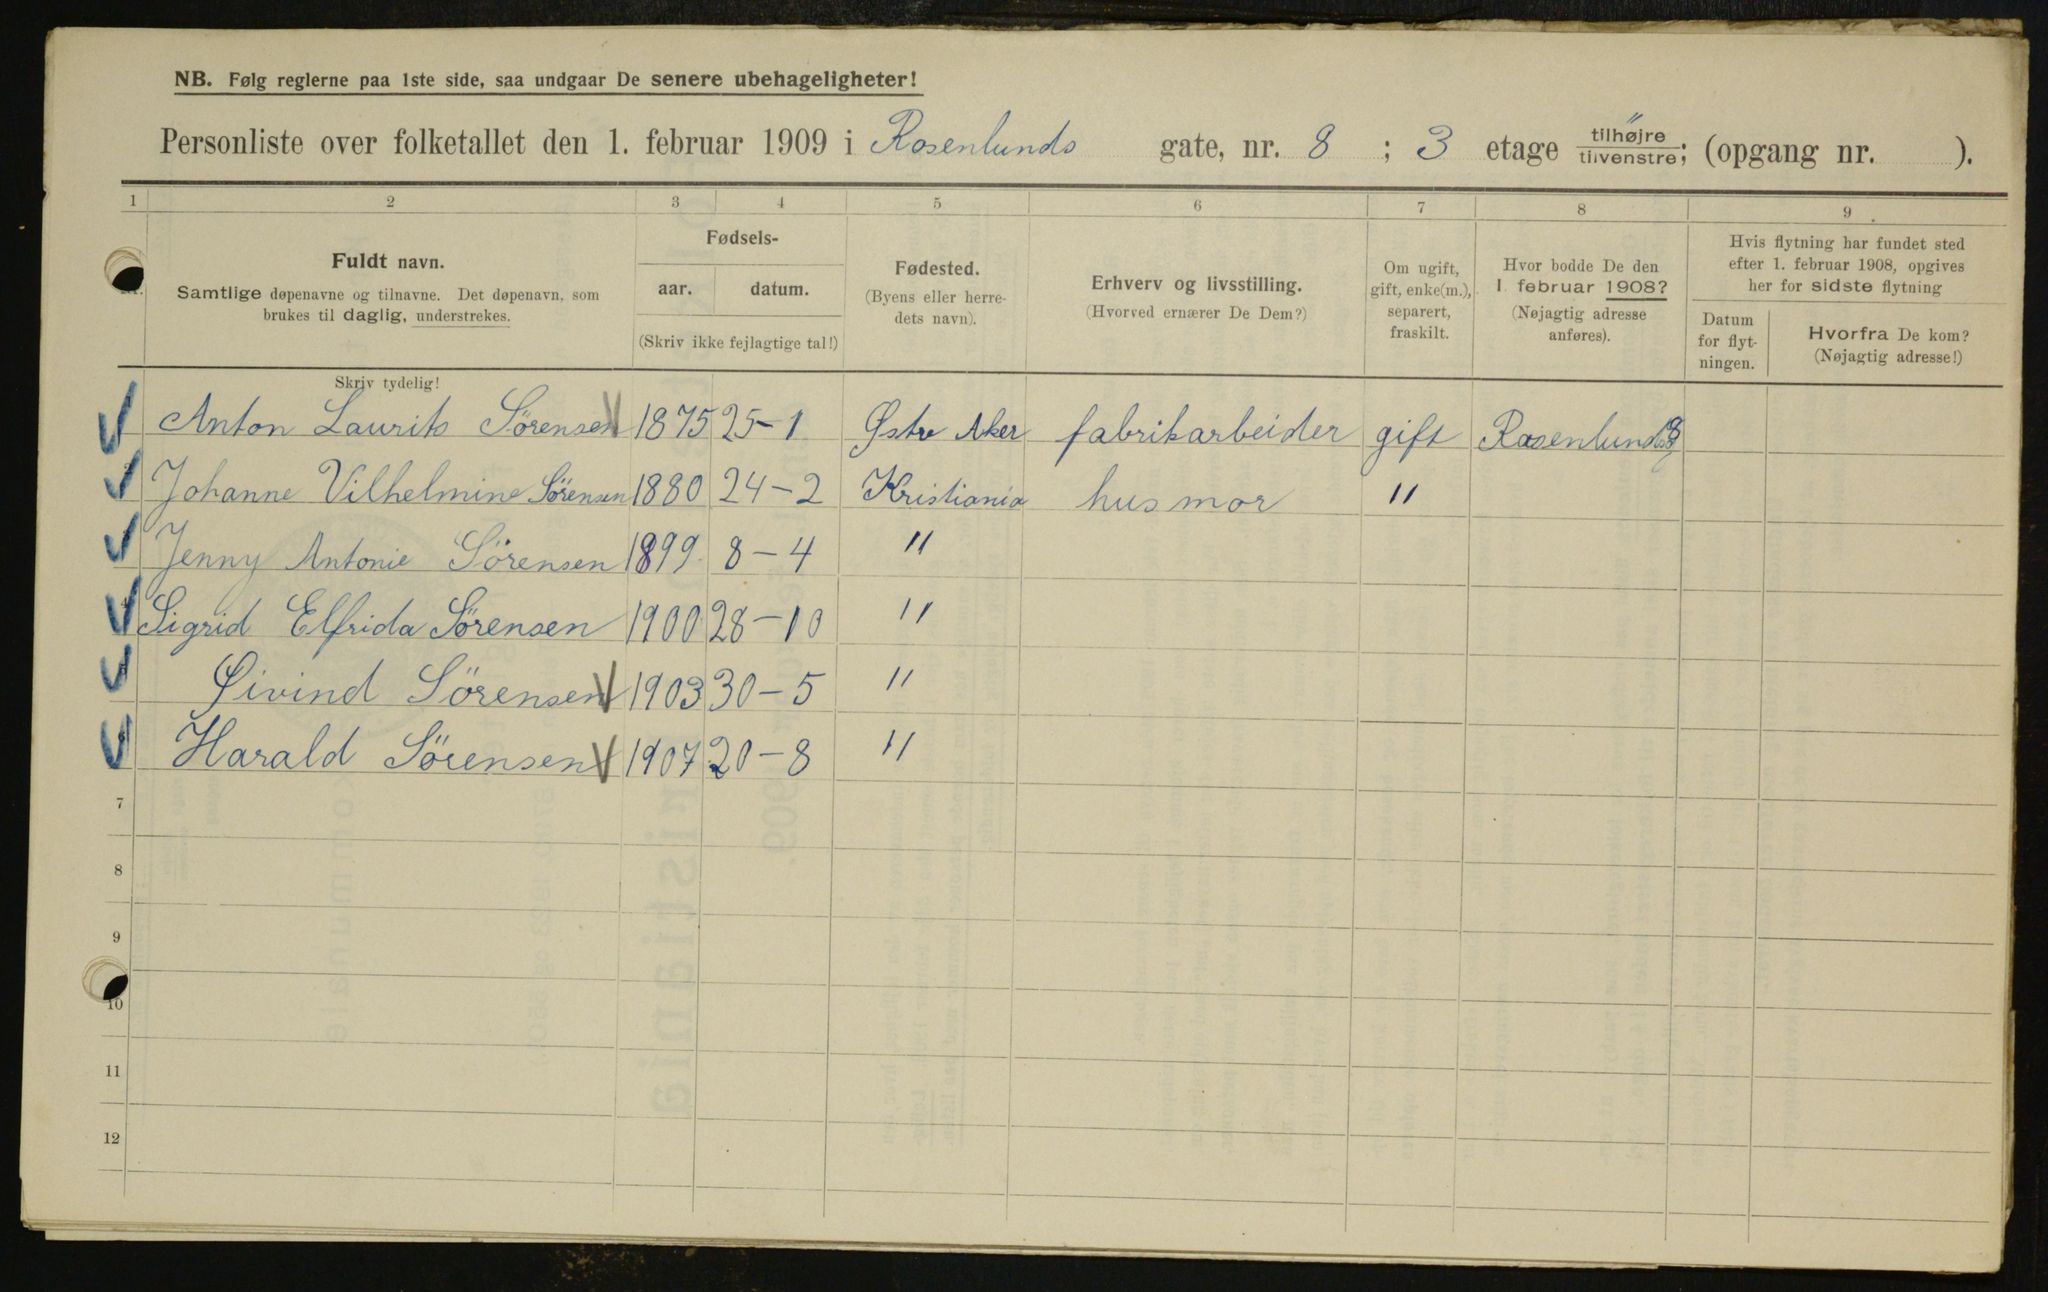 NB. Følg reglerne paa 1ste side, saa undgaar De senere ubehageligheter!
Personliste over folketallet den 1. februar 1909 i Rosenlunds gate, nr. 8 ; 3 etage tilhøjre/tilvenstre; (opgang nr. ).
1 2 3 4 5 6 7 8 9
Fuldt navn.
Samtlige døpenavne og tilnavne. Det døpenavn, som
brukes til daglig, understrekes.
Skriv tydelig!
Fødsels-
aar. datum.
(Skriv ikke fejlagtige tal!)
Fødested.
(Byens eller herre-
dets navn).
Erhverv og livsstilling.
(Hvorved ernærer De Dem?)
Om ugift,
gift, enke(m.),
separert,
fraskilt.
Hvor bodde De den
1. februar 1908?
(Nøjagtig adresse
anføres).
Hvis flytning har fundet sted
efter 1. februar 1908, opgives
her for sidste flytning
Datum
for flyt-
ningen.
Hvorfra De kom?
(Nøjagtig adresse!)
Anton Laurits Sørensen 1875 25-1 Østre Aker fabrikarbeider gift Rosenlundsg 8
Johanne Vilhelmine Sörensen 1880 24-2 Kristiania husmor "
Jenny Antonie Sörensen 1899 8-4 "
Sigrid Elfrida Sørensen 1900 28-10 "
Øivind Sörensen 1903 30-5 "
Harald Sørensen 1907 20-8 "
7
8
9
10
11
12